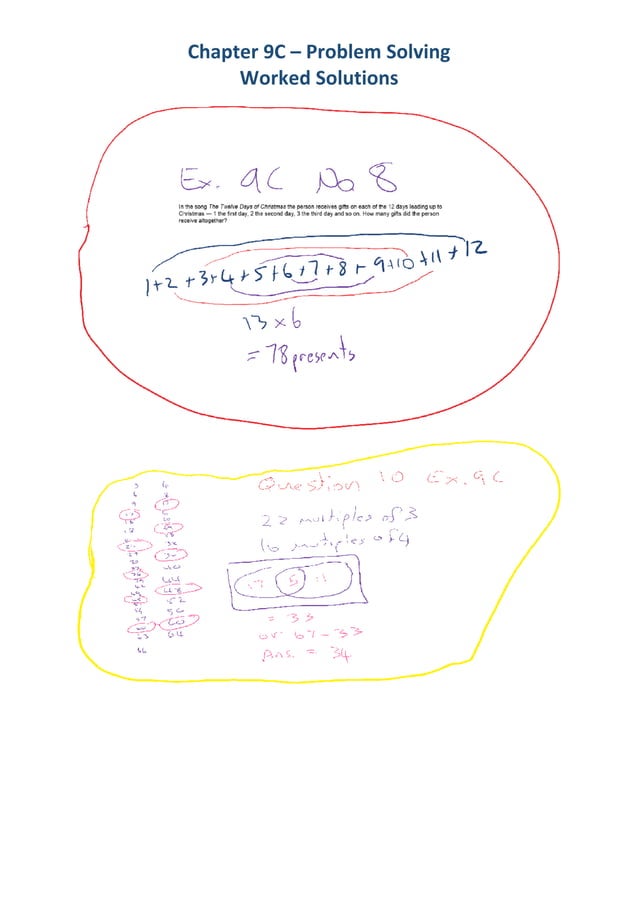 Chapter 9C – Problem Solving
Worked Solutions
Ex. 9C No 8
In the song The Twelve Days of Christmas the person receives gifts on each of the 12 days leading up to
Christmas — 1 the first day, 2 the second day, 3 the third day and so on. How many gifts did the person
receive altogether?
1+2+3+4+5+6+7+8+9+10+11+12
13×6
=78presents
Question 10 Ex. 9C
22 multiples of 3
16 multiples of 4
17 5 11
= 33
or 67-33
Ans. = 34
3 4
6 8
9
44
48
52
56
60
63 64
66